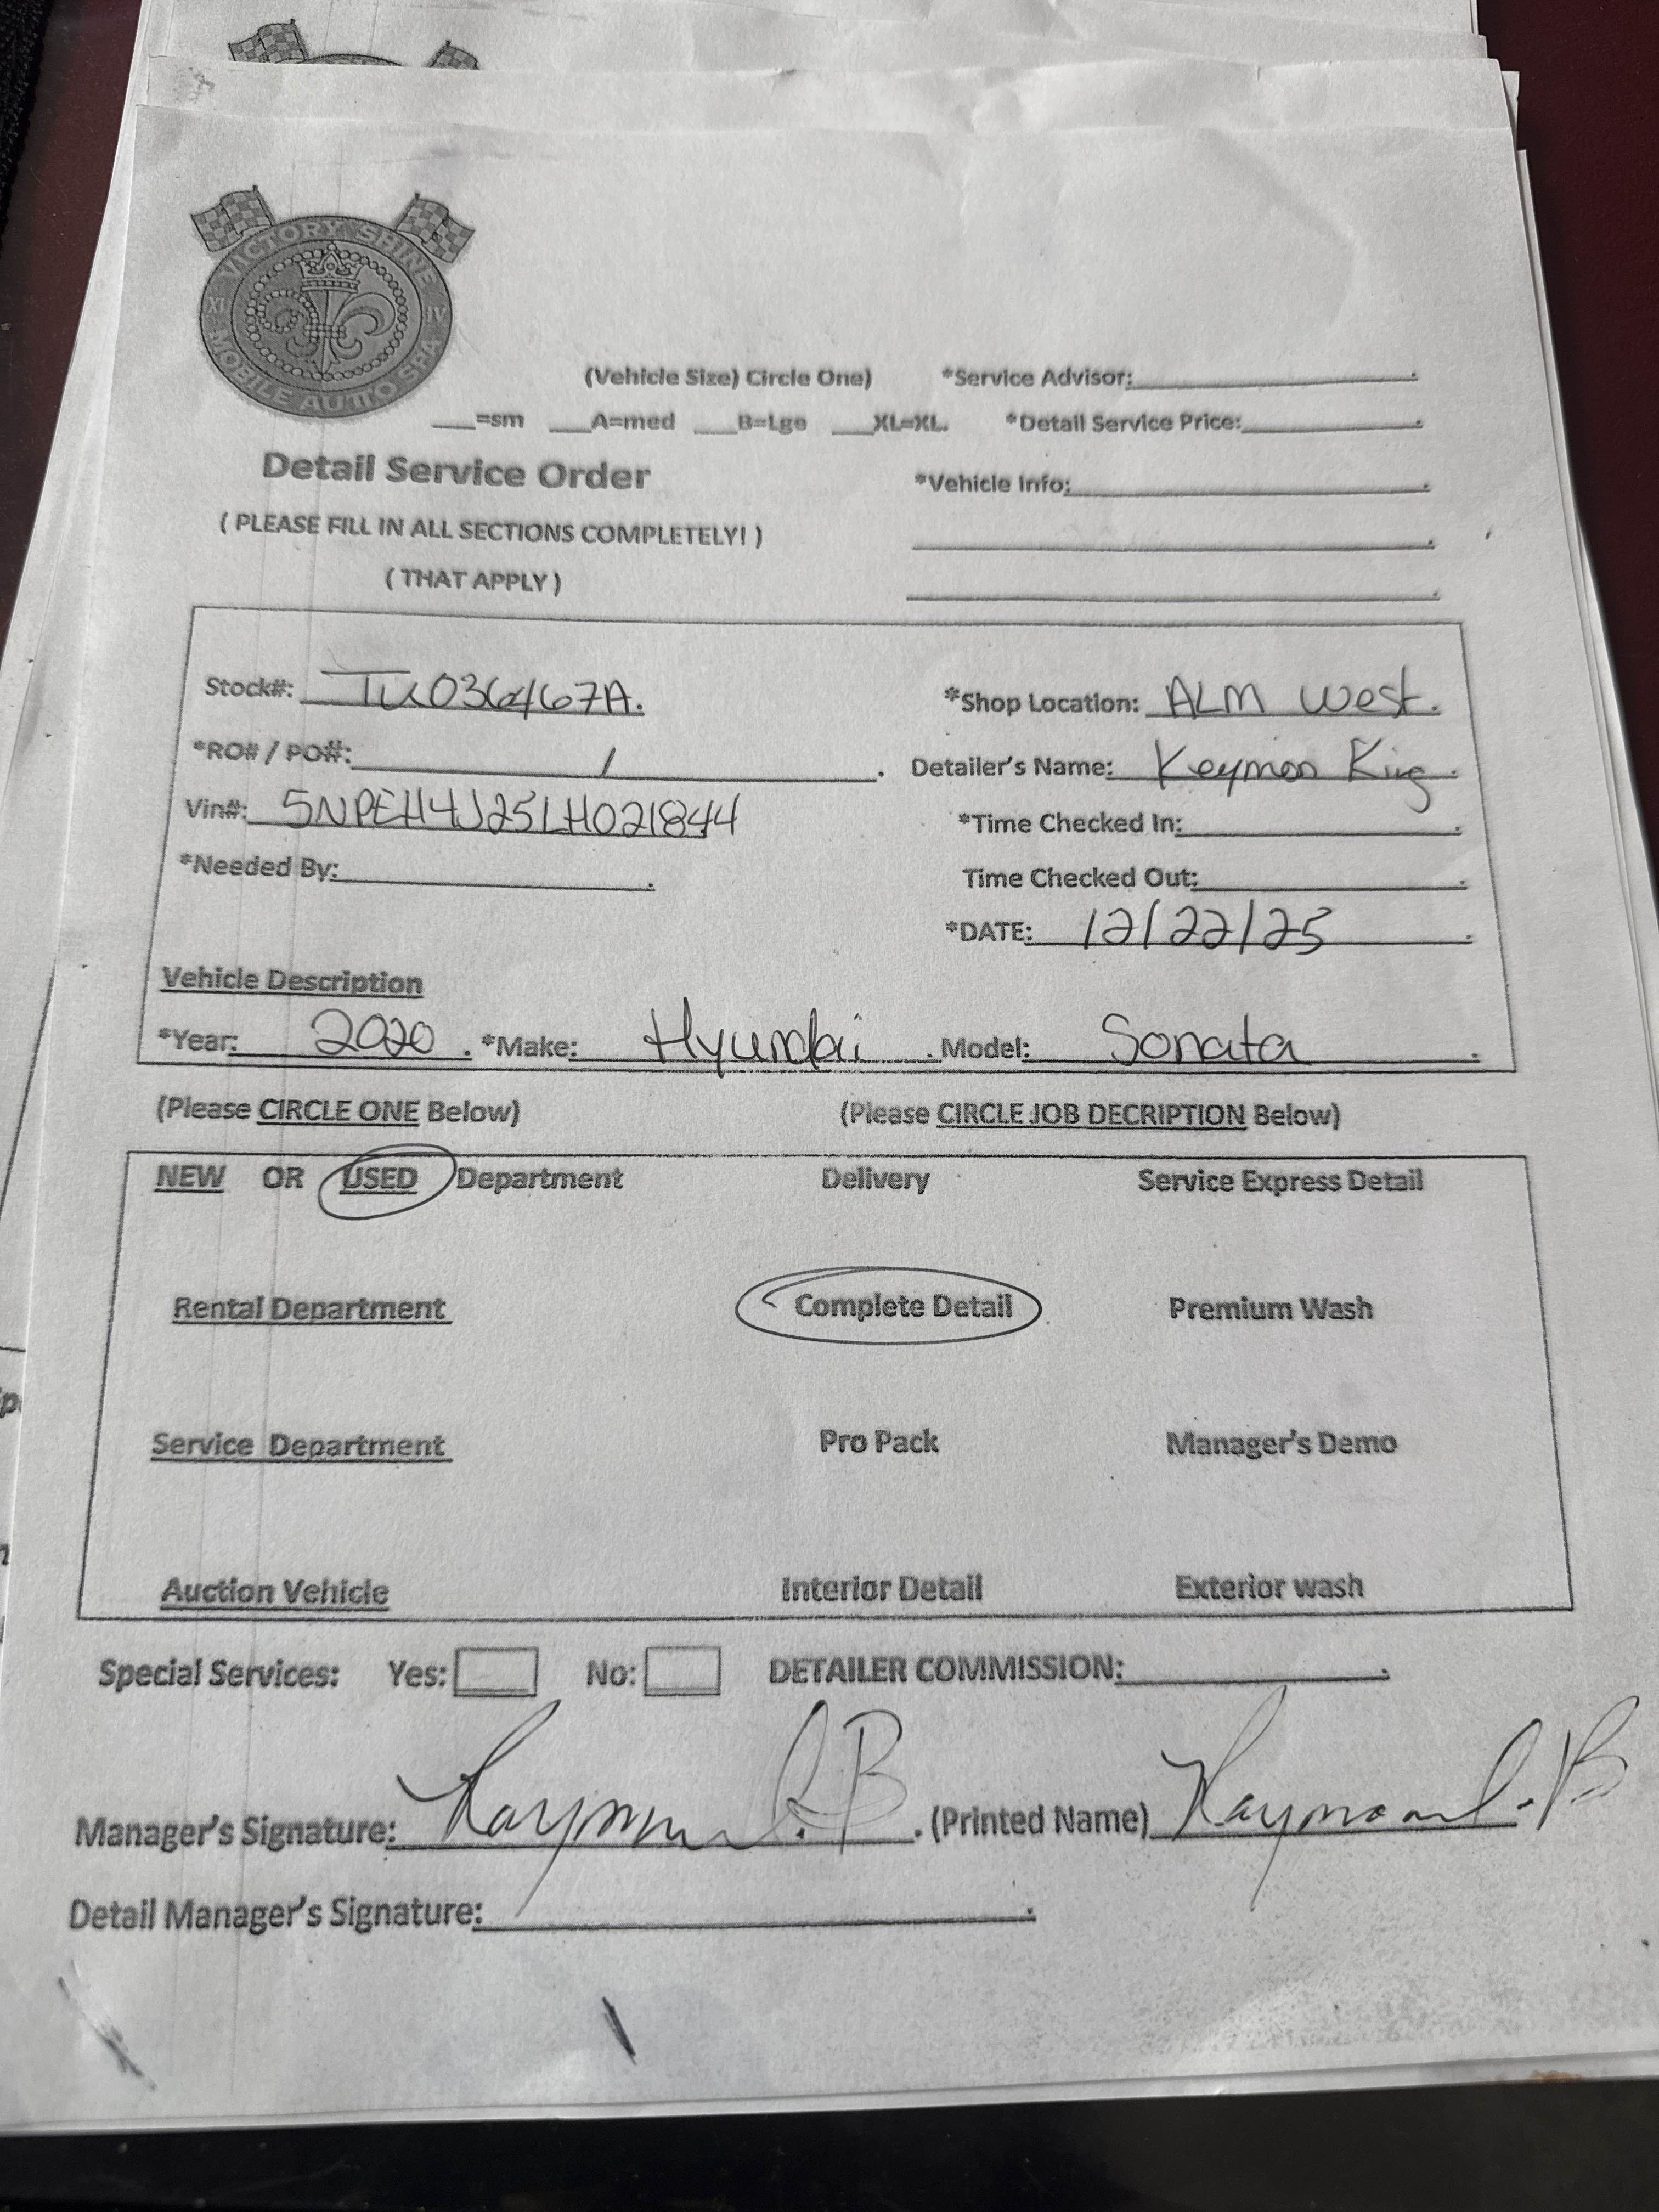 VICTORY SHINE
XI IV
MOBILE AUTO SPA
(Vehicle Size) Circle One) *Service Advisor:
=sm A=med B=Lge XL=XL. *Detail Service Price:
Detail Service Order *Vehicle Info:
( PLEASE FILL IN ALL SECTIONS COMPLETELY! )
( THAT APPLY )
Stock#: *Shop Location: ALM West.
*RO# / PO#: / Detailer's Name: Keymon King
Vin#: 5NPEH4J25LH021844 *Time Checked In:
*Needed By: Time Checked Out:
*DATE: 12/22/25
Vehicle Description
*Year: 2020 . *Make: Hyundai . Model: Sonata
(Please CIRCLE ONE Below) (Please CIRCLE JOB DECRIPTION Below)
NEW OR USED Department Delivery Service Express Detail
Rental Department Complete Detail Premium Wash
Service Department Pro Pack Manager's Demo
Auction Vehicle Interior Detail Exterior wash
Special Services: Yes: No: DETAILER COMMISSION:
Manager's Signature: Raymond. B . (Printed Name) Raymond. B
Detail Manager's Signature: